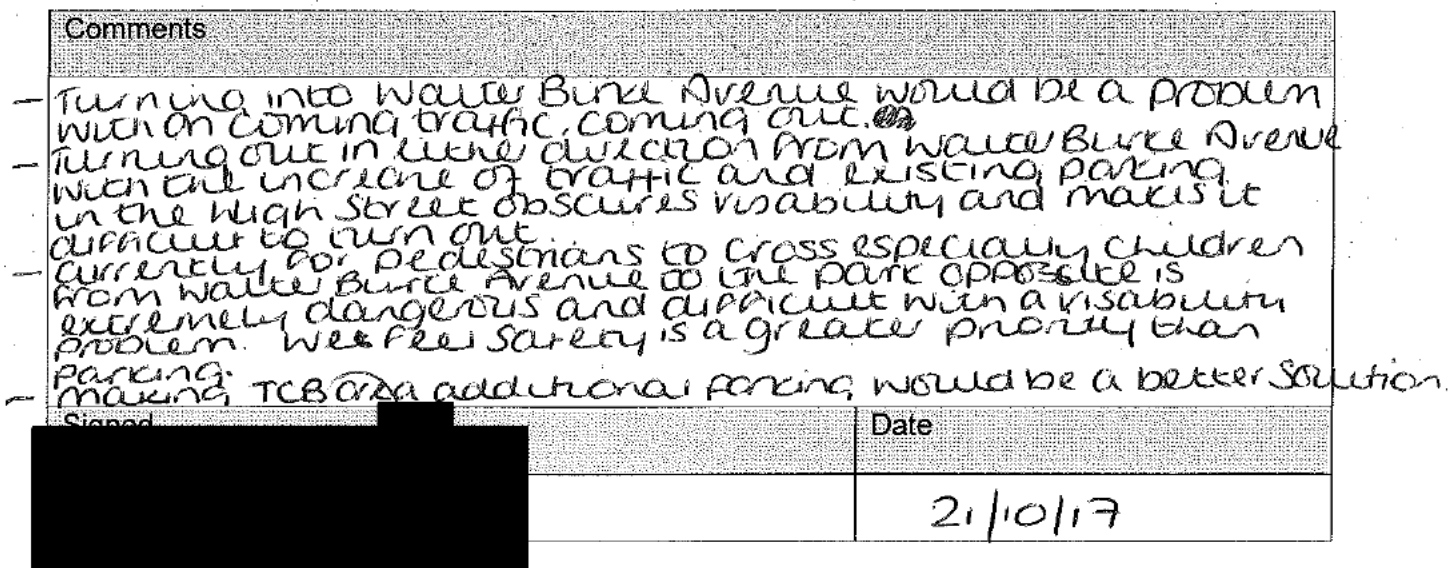 Comments
- Turning into Walter Burke Avenue would be a problem
with on coming traffic. coming out.
- Turning out in either direction from Walter Burke Avenue
with the increase of traffic and existing parking
in the High Street obscures visability and makes it
difficult to turn out.
- Currently for pedestrians to cross especially children
from Walter Burke Avenue to the park opposite is
extremely dangerous and difficult with a visability
problem. We feel safety is a greater priority than
parking.
- Making TCB area additional parking would be a better solution.
Signed
Date
21/10/17